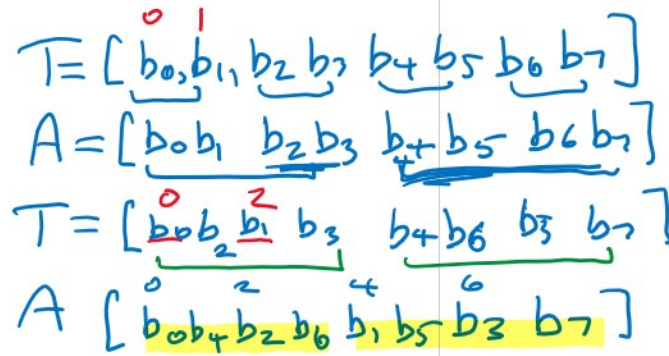 0 1
T=[b0,b1,b2 b3 b4 b5 b6 b7]
A=[b0b1 b2b3 b4b5 b6b7]
0 2
T=[b0b2 b1 b3 b4b6 b5 b7]
0 2 4 6
A [b0b4b2b6 b1b5b3 b7]